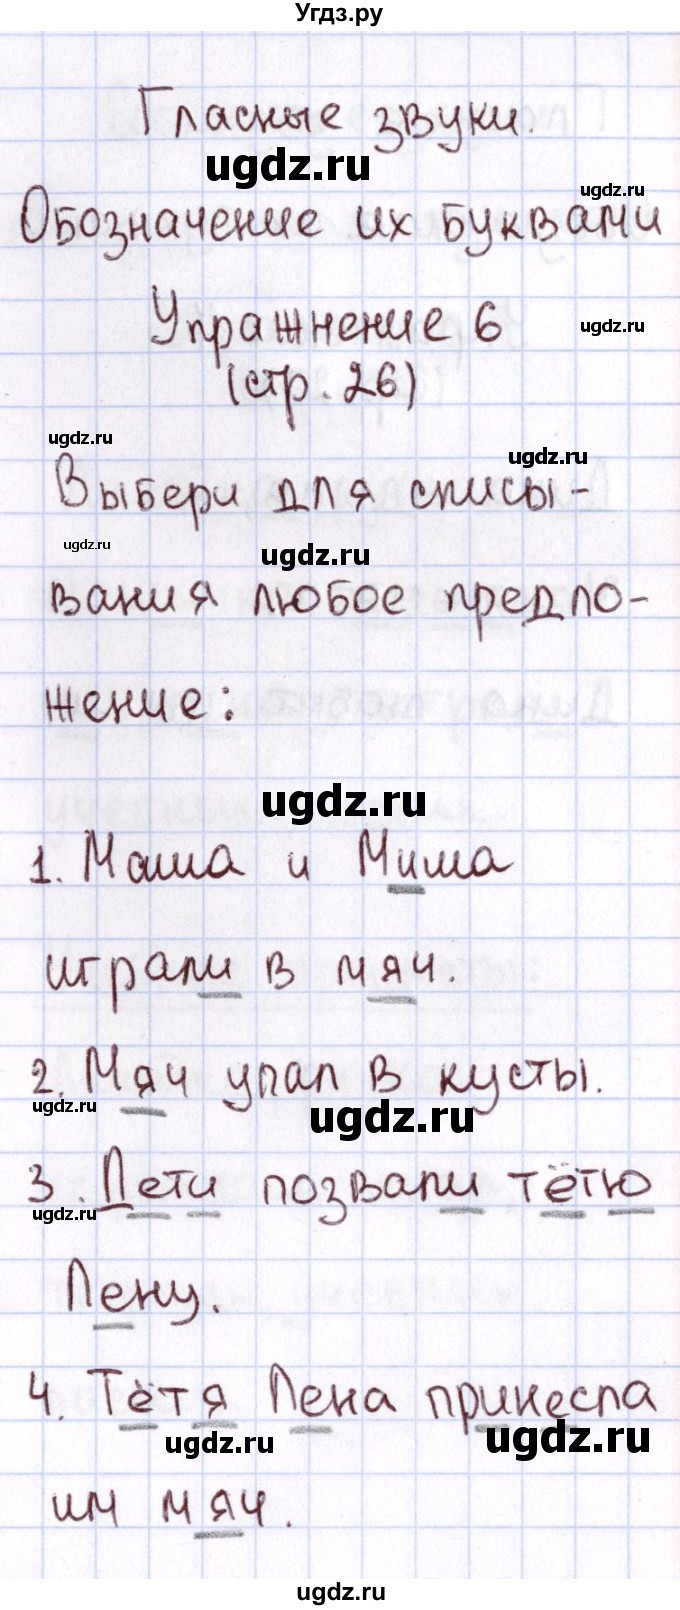 Угдз.ру
Гласные звуки.
ugdz.ru
ugdz.ru
Обозначение их буквами
Упражнение 6
ugdz.ru
(стр. 26)
ugdz.ru
ugdz.ru
Выбери для списы-
ugdz.ru
ugdz.ru
вания любое предло-
жение:
ugdz.ru
1. Маша и Миша
играли в мяч.
2. Мяч упал в кусты.
ugdz.ru
ugdz.ru
3. Дети позвали тётю
ugdz.ru
Лену.
4. Тётя Лена принесла
ugdz.ru
ugdz.ru
им мяч.
ugdz.ru